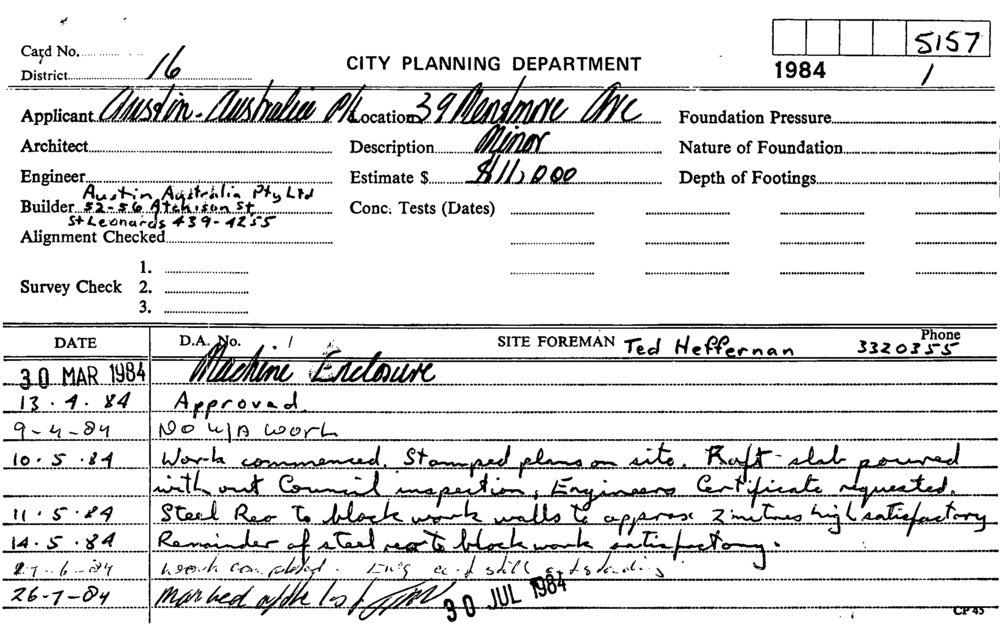 5157
Card No.
CITY PLANNING DEPARTMENT
1984 1
District 16
Applicant Austin-Australia P/L Location 39 Mentmore Ave Foundation Pressure
Architect Description Minor Nature of Foundation
Engineer Estimate $ $11,000 Depth of Footings
Austin Australia Pty Ltd
Builder 52-56 Atchison St Conc. Tests (Dates)
St Leonards 439-4255
Alignment Checked
1.
Survey Check 2.
3.
DATE D.A. No. SITE FOREMAN Ted Heffernan Phone 3320355
30 MAR 1984 Machine Enclosure
13.4.84 Approved.
9-4-84 No W/A work
10.5.84 Work commenced. Stamped plans on site. Raft slab poured
without Council inspection, Engineers Certificate requested.
11.5.84 Steel Reo to block work walls to approx 2 metres high satisfactory
14.5.84 Remainder of steel reo to block work satisfactory.
27-6-84 Work completed. Eng cert still outstanding
26-7-84 Marked off
30 JUL 1984
CP 45